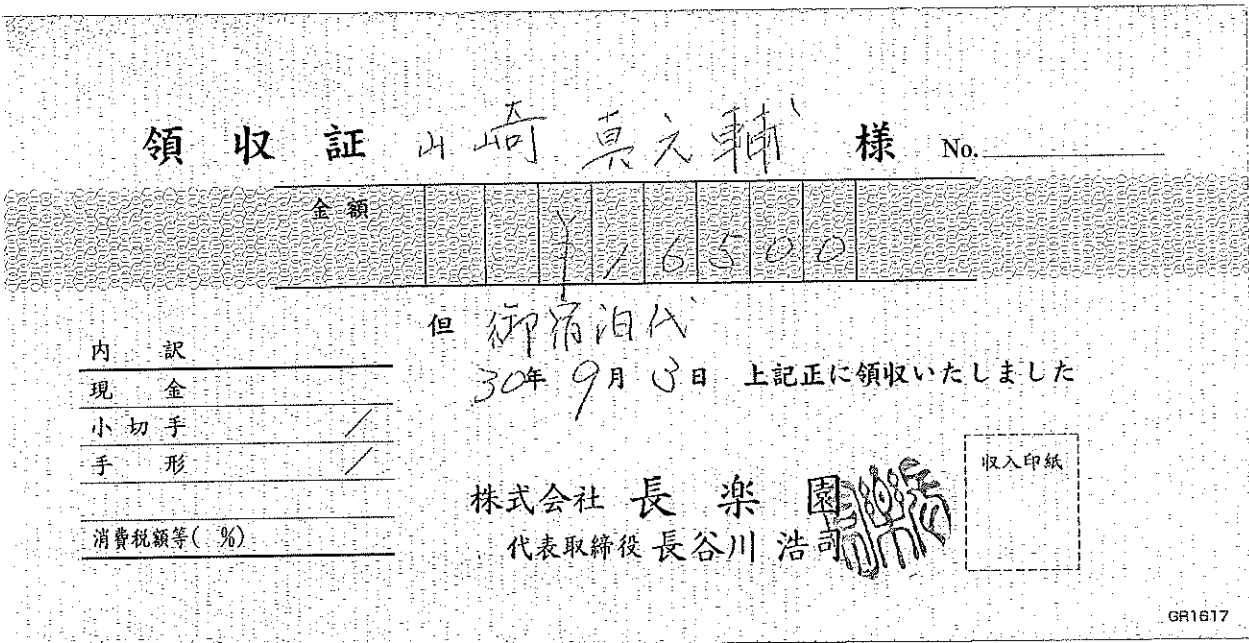 領収証 山崎 真之輔 様 No.
金額 ¥16500
但 御宿泊代
30年 9月 3日 上記正に領収いたしました
内訳
現金
小切手 /
手形 /
消費税額等( %)
収入印紙
株式会社 長楽園
代表取締役 長谷川 浩司
GR1617